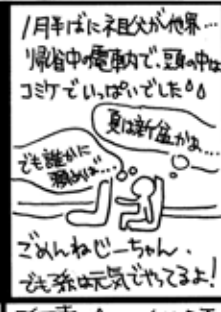 1月半ばに祖父が他界…
帰省中の電車内で、頭の中は
コミケでいっぱいでした
夏は新盆かぁ…
でも誰かに
頼めば…
ごめんねじーちゃん、
でも孫は元気でやってるよ!